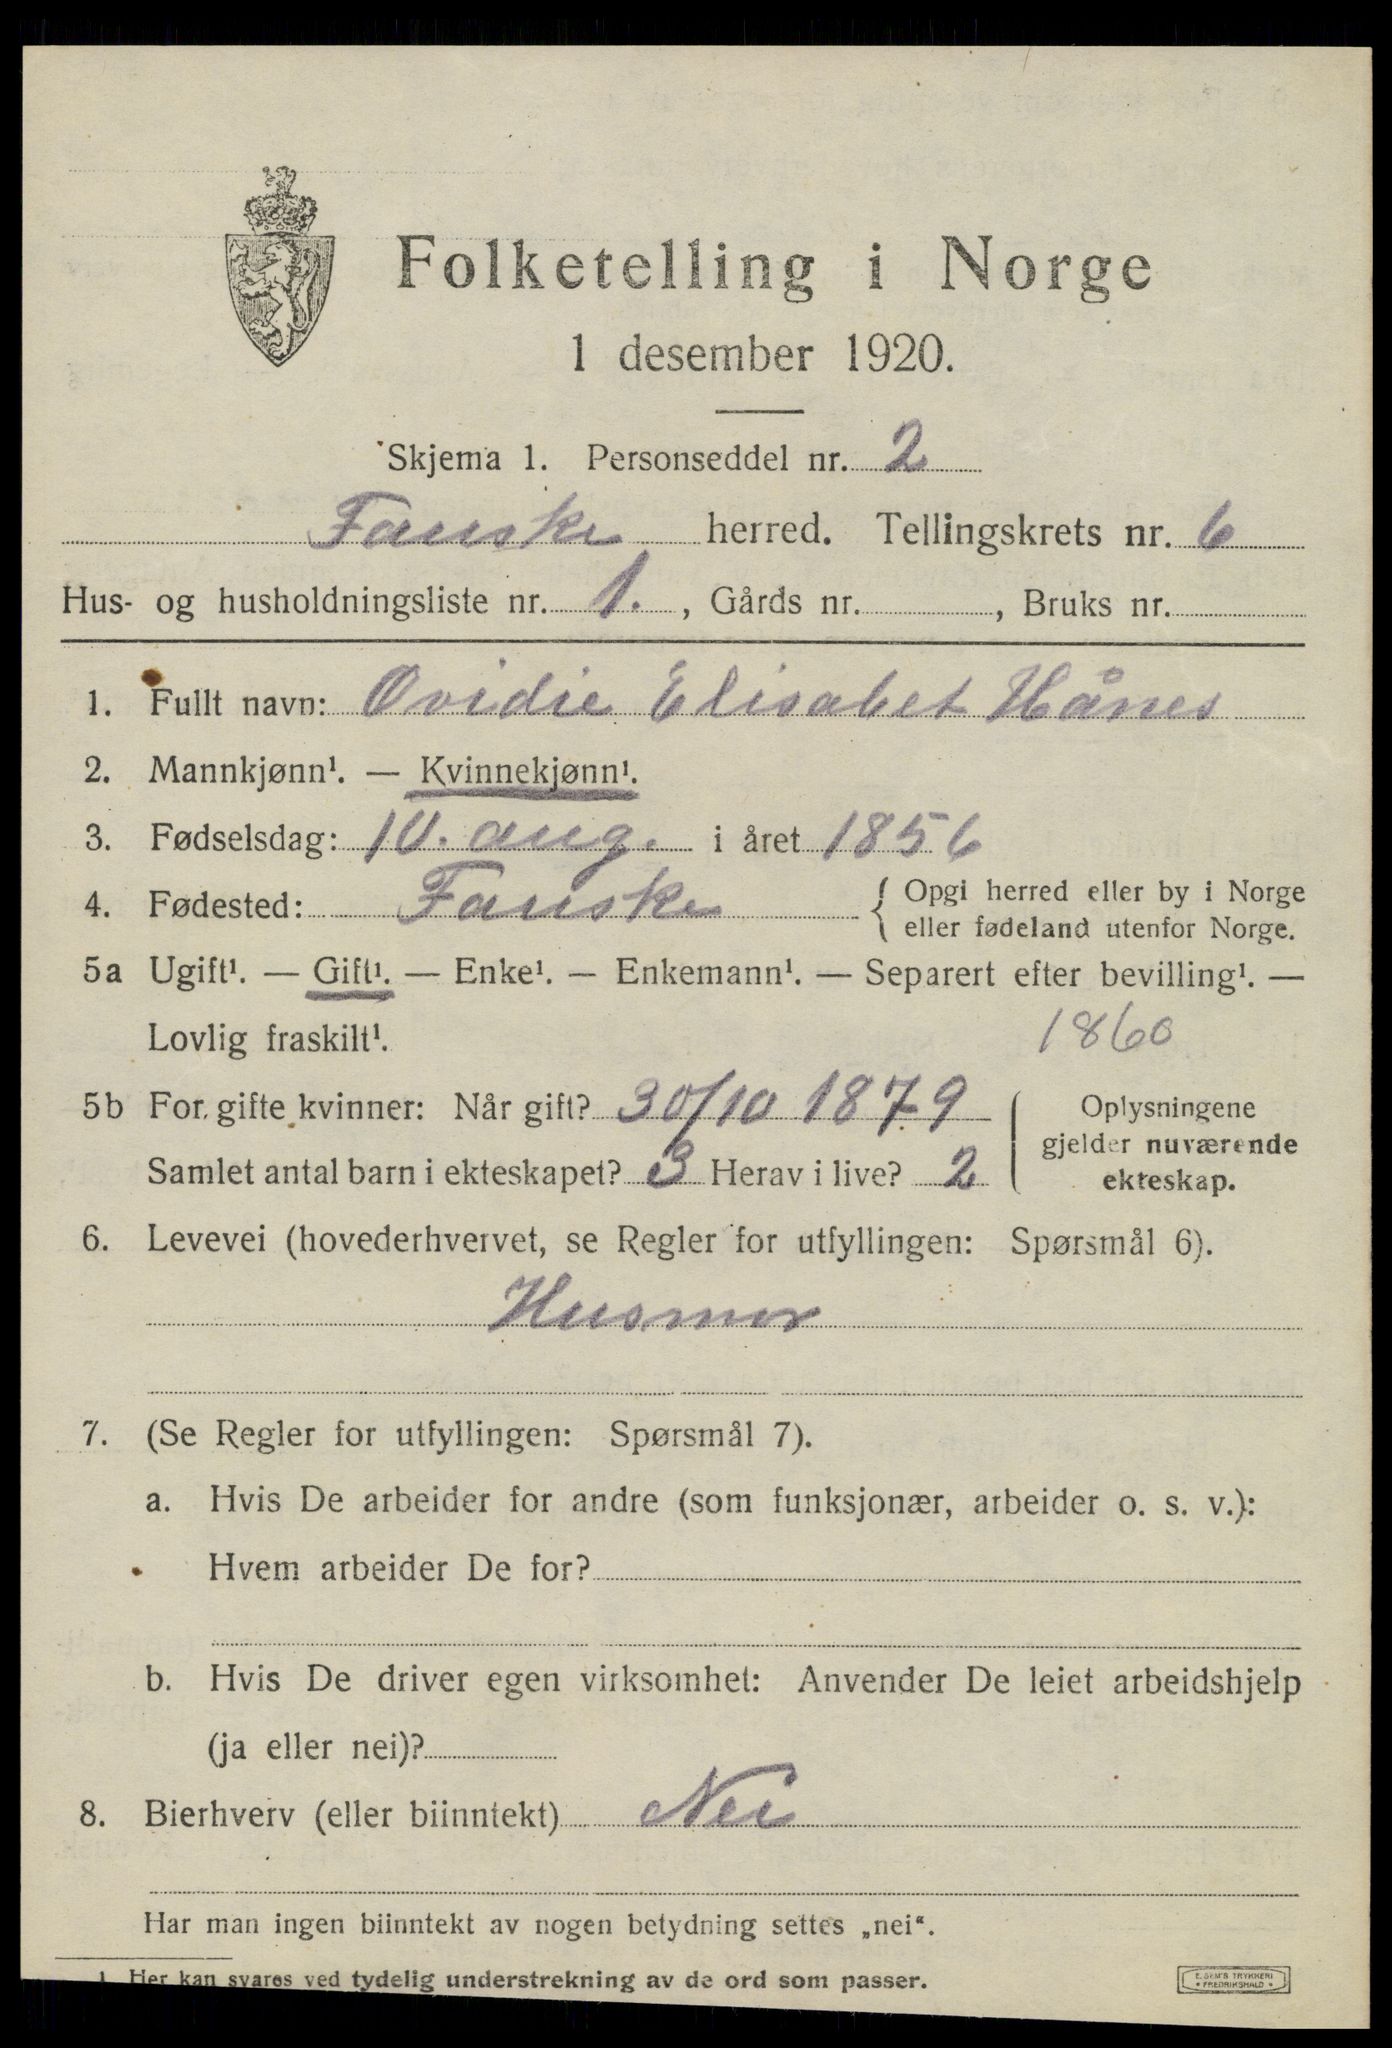 Folketelling i Norge
1 desember 1920.
Skjema 1. Personseddel nr. 2
Fauske herred. Tellingskrets nr. 6
Hus- og husholdningsliste nr. 1. , Gårds nr. , Bruks nr.
1. Fullt navn: Ovidie Elisabet Hånes
2. Mannkjønn¹. — Kvinnekjønn¹.
3. Fødselsdag: 10. aug. i året 1856
4. Fødested: Fauske { Opgi herred eller by i Norge
eller fødeland utenfor Norge.
5a Ugift¹. — Gift¹. — Enke¹. — Enkemann¹. — Separert efter bevilling¹. —
Lovlig fraskilt¹. 1860
5b For gifte kvinner: Når gift? 30/10 1879
Samlet antal barn i ekteskapet? 3 Herav i live? 2
Oplysningene
gjelder nuværende
ekteskap.
6. Levevei (hovederhvervet, se Regler for utfyllingen: Spørsmål 6).
Husmor
7. (Se Regler for utfyllingen: Spørsmål 7).
a. Hvis De arbeider for andre (som funksjonær, arbeider o. s. v.):
Hvem arbeider De for?
b. Hvis De driver egen virksomhet: Anvender De leiet arbeidshjelp
(ja eller nei)?
8. Bierhverv (eller biinntekt) Nei
Har man ingen biinntekt av nogen betydning settes „nei“.
1 Her kan svares ved tydelig understrekning av de ord som passer.
E. SEM'S TRYKKERI
FREDRIKSHALD